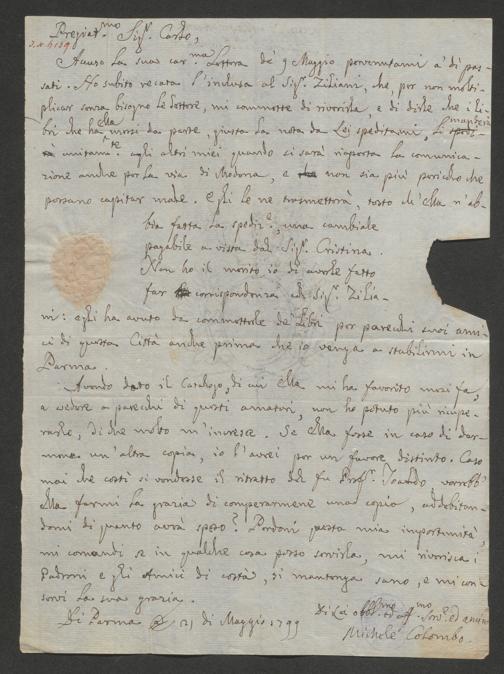 Pregiat.mo Sig.r Carlo,
Accuso la sua car.ma Lettera de' 9 Maggio pervenutami a' dì pas-
sati. Ho subito recata l'inclusa al Sig.r Ziliani, che, per non molti-
plicar senza bisogno le Lettere, mi commette di riverirla e di dirle che i li-
bri che Ella ha messi da parte, giusta la nota da Lei speditami, li manderà
unitam.te agli altri miei quando si sarà riaperta la comunica-
zione anche per la via di Modena, e non sia più pericolo che
possano capitar male. Egli le ne trasmetterà, tosto ch'Ella n'ab-
bia fatta la spediz.e, una cambiale
pagabile a vista dal Sig.r Cristina.
Non ho il merito io di averle fatto
far corrispondenza col Sig.r Zilia-
ni: egli ha avuto da commetterle de' Libri per parecchi suoi ami-
ci di questa Città anche prima che io venga a stabilirmi in
Parma.
Avendo dato il Catalogo, di cui Ella mi ha favorito mesi fa,
a vedere a parecchi di questi amatori, non ho potuto più ricupe-
rarlo, di che molto m'incresce. Se Ella fosse in caso di dar-
mene un'altra copia, io l'avrei per un favore distinto. Caso
mai che costì si vendesse il ritratto del fu Prof.r Toaldo vorrebb'
Ella farmi la grazia di comperarmene una copia, addebitan-
domi di quanto avrà speso? Perdoni questa mia importunità,
mi comandi se in qualche cosa posso servirla, mi riverisca i
Padroni e gli Amici di costà, si mantenga sano, e mi con-
servi la sua grazia.
Di Parma 21 di Maggio 1799
Di Lei obb.mo ed aff.mo Ser.e ed amico
Michele Colombo.